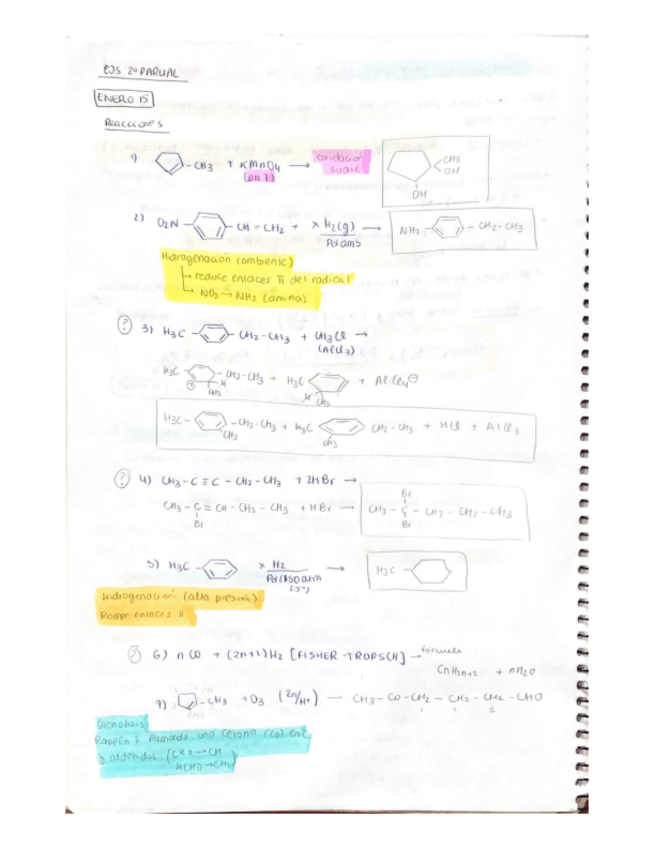 EJS 2º PARCIAL
ENERO 15
Reacciones
1) -CH3 + KMnO4 → oxidación
suave
CH3
OH
OH
2) O2N- -CH=CH2 + xH2(g) →
NH2- -CH2-CH3
Hidrogenación (ambiente)
→ reduce enlaces π del radical
→ NO2 → NH2 (amina)
? 3) H3C- -CH2-CH3 + CH3Cl →
(AlCl3)
H3C -CH2-CH3 + H3C + AlCl4⊖
⊕ H
CH3
H CH3
H3C- -CH2-CH3 + H3C CH2-CH3 + HCl + AlCl3
CH3
CH3
? 4) CH3-C≡C-CH2-CH3 + 2HBr →
CH3-C=CH-CH2-CH3 + HBr →
Br
Br
CH3-C-CH2-CH2-CH3
Br
5) H3C- x H2 →
H3C-
Hidrogenación (alta presión)
Rompe enlaces π
? 6) nCO + (2n+1)H2 [FISHER-TROPSCH] → fórmula
CnH2n+2 + nH2O
7) -CH3 + O3 (Zn/H+) → CH3-CO-CH2-CH2-CH2-CHO
1 2 3
Ozonolisis